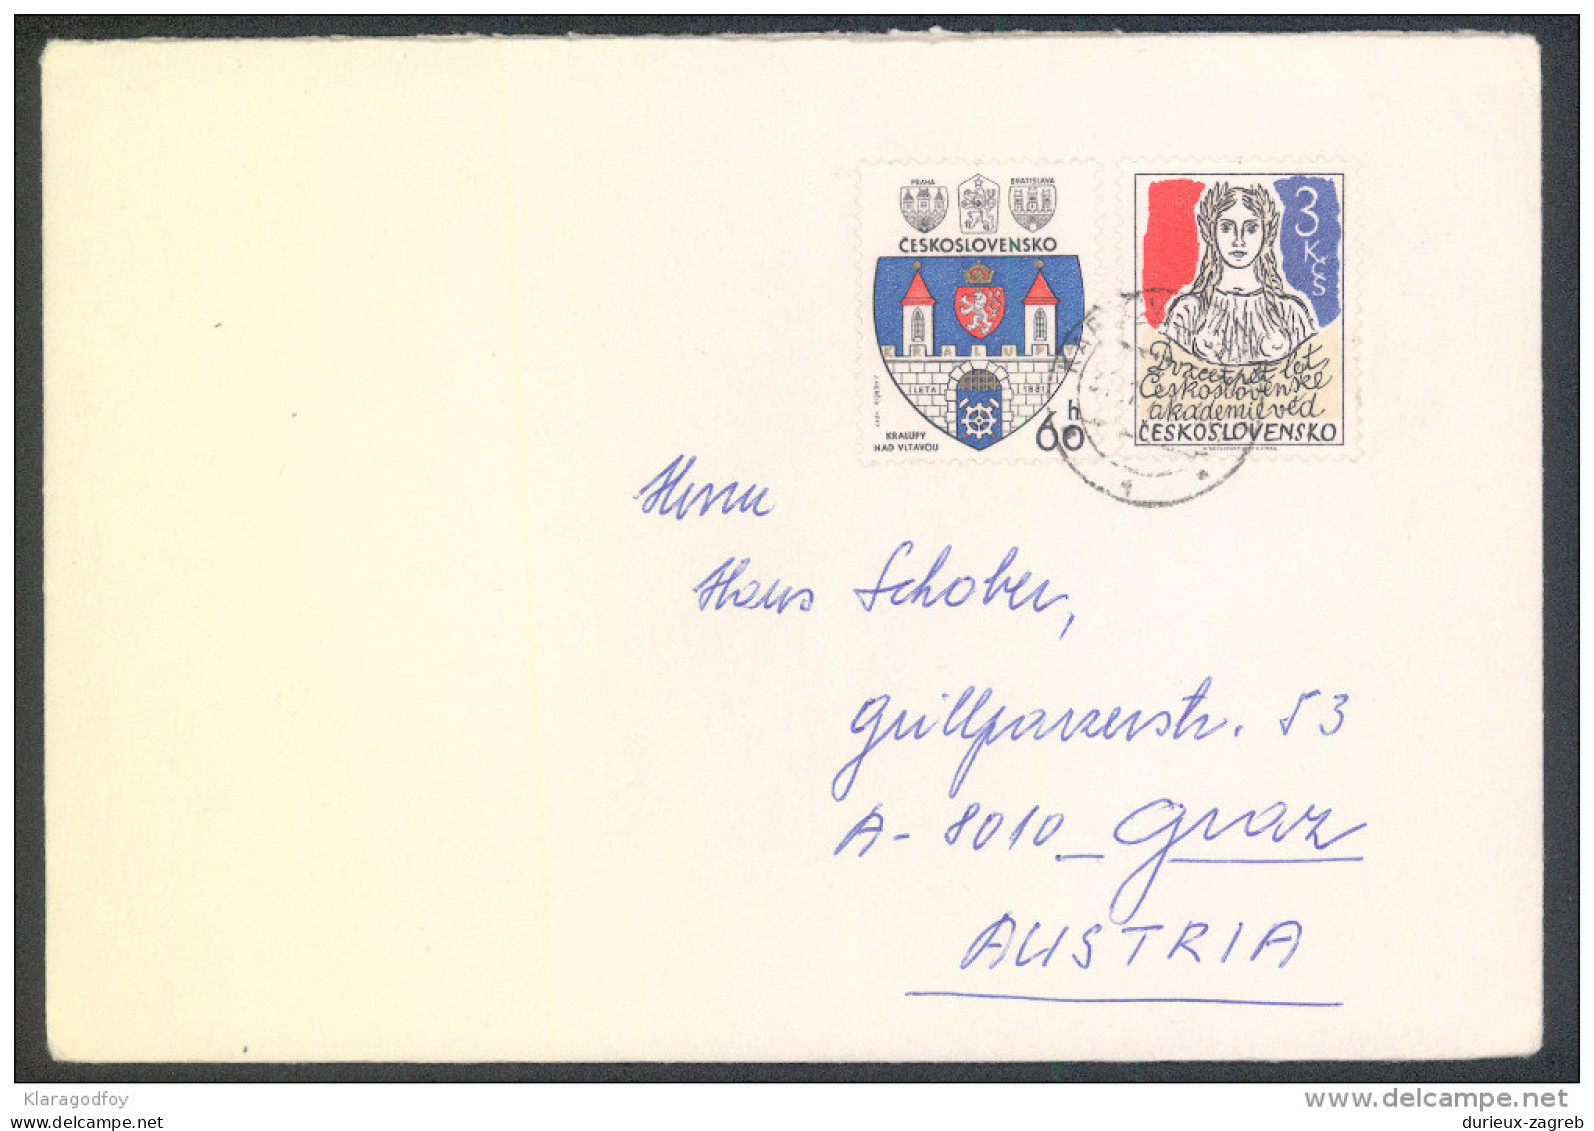 PRAHA
BRATISLAVA
ČESKOSLOVENSKO
KRALUPY
LETA 1881
KRALUPY
NAD VLTAVOU
60 h
3
Kčs
Dvacet pět let
Československé
akademie věd
ČESKOSLOVENSKO
Herrn
Hans Schober,
Grillparzerstr. 53
A-8010 Graz
AUSTRIA
Klaragodfoy
delcampe.net
durieux-zagreb